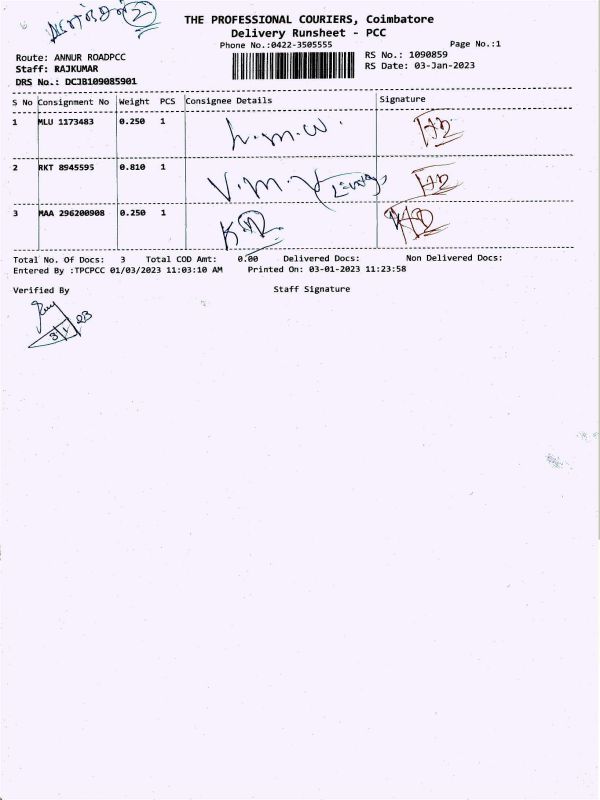 THE PROFESSIONAL COURIERS, Coimbatore
Delivery Runsheet - PCC
Phone No.:0422-3505555 Page No.:1
Route: ANNUR ROADPCC RS No.: 1090859
Staff: RAJKUMAR RS Date: 03-Jan-2023
DRS No.: DCJB109085901
S No Consignment No Weight PCS Consignee Details Signature
1 MLU 1173483 0.250 1
2 RKT 8945595 0.810 1
3 MAA 296200908 0.250 1
Total No. Of Docs: 3 Total COD Amt: 0.00 Delivered Docs: Non Delivered Docs:
Entered By :TPCPCC 01/03/2023 11:03:10 AM Printed On: 03-01-2023 11:23:58
Verified By Staff Signature
3/1/23